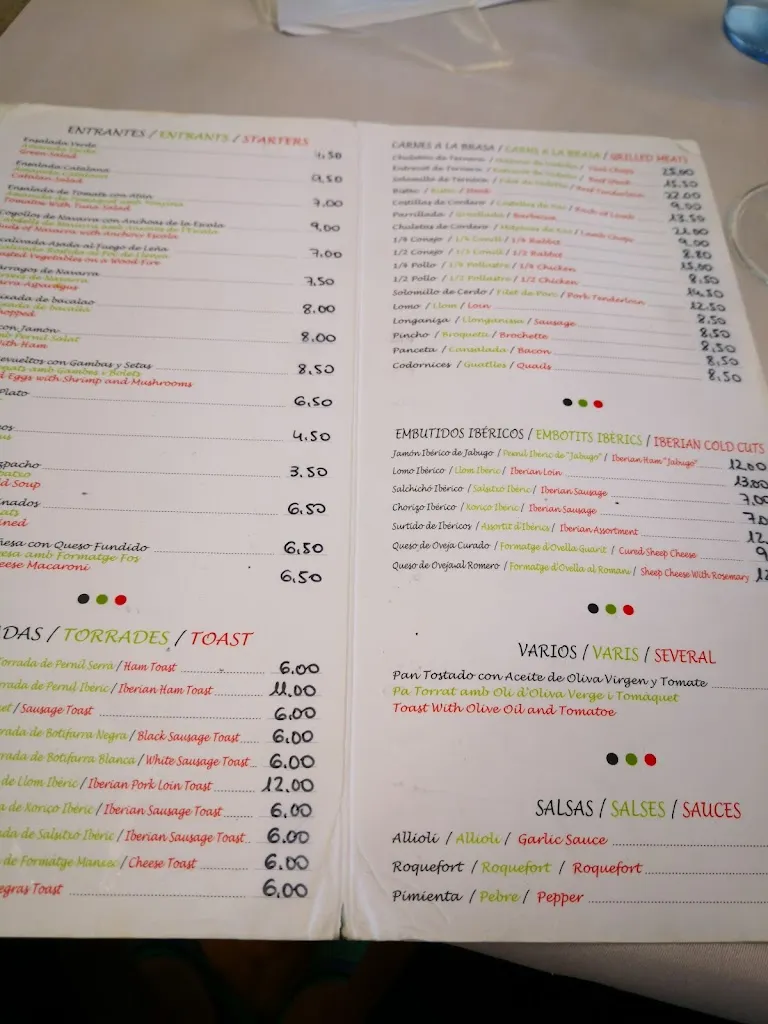 ENTRANTES / ENTRANTS / STARTERS
Ensalada Verde
Green Salad
4,50
Ensalada Catalana
Catalan Salad
9,50
Ensalada de Tomate con Atún
Tomatoes with Tuna Salad
7.00
Cogollos de Navarra con Anchoas de la Escala
9,00
calivada Asada al Fuego de Leña
sted Vegetables on a Wood Fire
7.00
arragos de Navarra
7,50
eixada de bacalao
8.00
con Jamón
mb Pernil Salat
with Ham
8,00
evueltos con Gambas y Setas
regats amb Gambes i Bolets
d Eggs with Shrimp and Mushrooms
8,50
Plato
6,50
4,50
spacho
d Soup
3.50
inados
ined
6,50
ñesa con Queso Fundido
esa amb Formatge Fos
eese Macaroni
6,50
6,50
DAS / TORRADES / TOAST
Torrada de Pernil Serrà / Ham Toast 6.00
rrada de Pernil Ibèric / Iberian Ham Toast 11.00
et / Sausage Toast 6.00
rrada de Botifarra Negra / Black Sausage Toast 6.00
rrada de Botifarra Blanca / White Sausage Toast 6.00
de Llom Ibèric / Iberian Pork Loin Toast 12.00
a de Xoriço Ibèric / Iberian Sausage Toast 6.00
ada de Salsitxó Ibèric / Iberian Sausage Toast 6.00
de Formatge Manxec / Cheese Toast 6.00
egras Toast 6.00
CARNES A LA BRASA / CARNS A LA BRASA / GRILLED MEATS
Chuletón de Ternera
Entrecot de Ternera
Solomillo de Ternera / Beef Tenderloin 22.00
Bistec 9,00
Costillas de Cordero 13.50
Parrillada / Graellada / Barbecue 21.00
Chuletas de Cordero / Lamb Chops 9,00
1/4 Conejo / 1/4 Conill / 1/4 Rabbit 8.80
1/2 Conejo / 1/2 Conill / 1/2 Rabbit 15,00
1/4 Pollo / 1/4 Pollastre / 1/4 Chicken 8,50
1/2 Pollo / 1/2 Pollastre / 1/2 Chicken 14,50
Solomillo de Cerdo / Filet de Porc / Pork Tenderloin 12,50
Lomo / Llom / Loin 8,50
Longaniza / Llonganissa / Sausage 8,50
Pincho / Broqueta / Brochette 8,50
Panceta / Cansalada / Bacon 8,50
Codornices / Guatlles / Quails 8,50
EMBUTIDOS IBÉRICOS / EMBOTITS IBÈRICS / IBERIAN COLD CUTS
Jamón Ibérico de Jabugo / Pernil Ibèric de "Jabugo" / Iberian Ham "Jabugo" 12.00
Lomo Ibérico / Llom Ibèric / Iberian Loin 13.00
Salchichó Ibérico / Salsitxó Ibèric / Iberian Sausage 7,00
Chorizo Ibérico / Xoriço Ibèric / Iberian Sausage 7.0
Surtido de Ibéricos / Assortit d'Ibèrics / Iberian Assortment 12.
Queso de Oveja Curado / Formatge d'Ovella Guarit / Cured Sheep Cheese 9
Queso de Oveja al Romero / Formatge d'Ovella al Romaní / Sheep Cheese With Rosemary 12
VARIOS / VARIS / SEVERAL
Pan Tostado con Aceite de Oliva Virgen y Tomate
Pa Torrat amb Oli d'Oliva Verge i Tomàquet
Toast With Olive Oil and Tomatoe
SALSAS / SALSES / SAUCES
Allioli / Allioli / Garlic Sauce
Roquefort / Roquefort / Roquefort
Pimienta / Pebre / Pepper